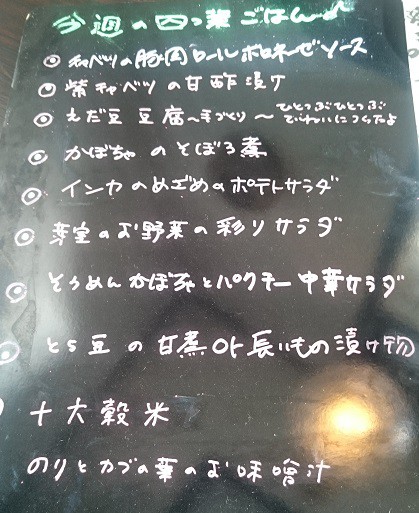 今週の四つ葉ごはん♪
◎ キャベツの豚肉ロールボロネーゼソース
◎ 紫キャベツの甘酢漬け
◎ えだ豆豆腐〜手づくり〜 ひとつぶひとつぶ
ていねいにつくったよ
◎ かぼちゃのそぼろ煮
◎ インカのめざめのポテトサラダ
◎ 芽室のお野菜の彩りサラダ
◎ そうめんかぼちゃとパクチー中華サラダ
◎ とら豆の甘煮 or 長いもの漬け物
十六穀米
のりとカブの葉のお味噌汁